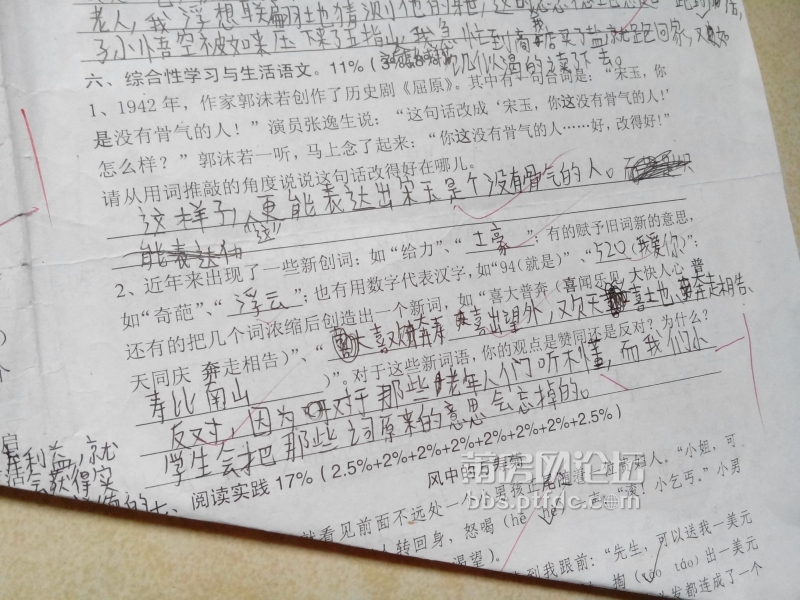 老人，我浮想联翩
了小悟空被如来压下了五指山，我急忙到商店买了盐就跑回家，又
六、综合性学习与生活语文。11%（3%
1、1942年，作家郭沫若创作了历史剧《屈原》。其中有一句台词是：“宋玉，你
是没有骨气的人！”演员张逸生说：“这句话改成‘宋玉，你这没有骨气的人！’
怎么样？”郭沫若一听，马上念了起来：“你这没有骨气的人……好，改得好！”
请从用词推敲的角度说说这句话改得好在哪儿。
这样子，更能表达出宋玉是个没有骨气的人。
能表达
2、近年来出现了一些新创词：如“给力”、“土豪”；有的赋予旧词新的意思，
如“奇葩”、“浮云”；也有用数字代表汉字，如“94(就是)”、“520(我爱你)”；
还有的把几个词浓缩后创造出一个新词，如“喜大普奔（喜闻乐见 大快人心 普
天同庆 奔走相告）”、“大喜欢奔 喜出望外，欢天喜地，奔走相告、
寿比南山）”。对于这些新词语，你的观点是赞同还是反对？为什么？
反对，因为对于那些老年人们听不懂，而我们小
学生会把那些词原来的意思会忘掉的。
利益，就
获得实
的七、阅读实践17%（2.5%+2%+2%+2%+2%+2%+2%+2.5%）
风中的
莆房网论坛
bbs.ptfdc.com
看见前面不远处一个小男孩
妇人。“小姐，可
人转回身，怒喝（hē hè）一声：“滚！小乞丐。”小男
渴望）。
到我跟前：“先生，可以送我一美元
掏（tāo dāo）出一美元
发都连成了一个